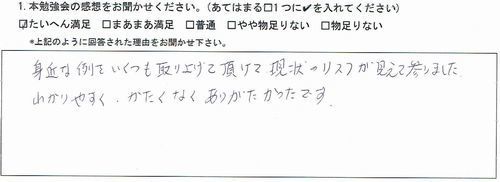 1. 本勉強会の感想をお聞かせください。(あてはまる□1つに✔を入れてください)
☑たいへん満足 □まあまあ満足 □普通 □やや物足りない □物足りない
*上記のように回答された理由をお聞かせ下さい。
身近な例をいくつも取り上げて頂けて現状のリスクが見えて参りました
わかりやすく、かたくなくありがたかったです。